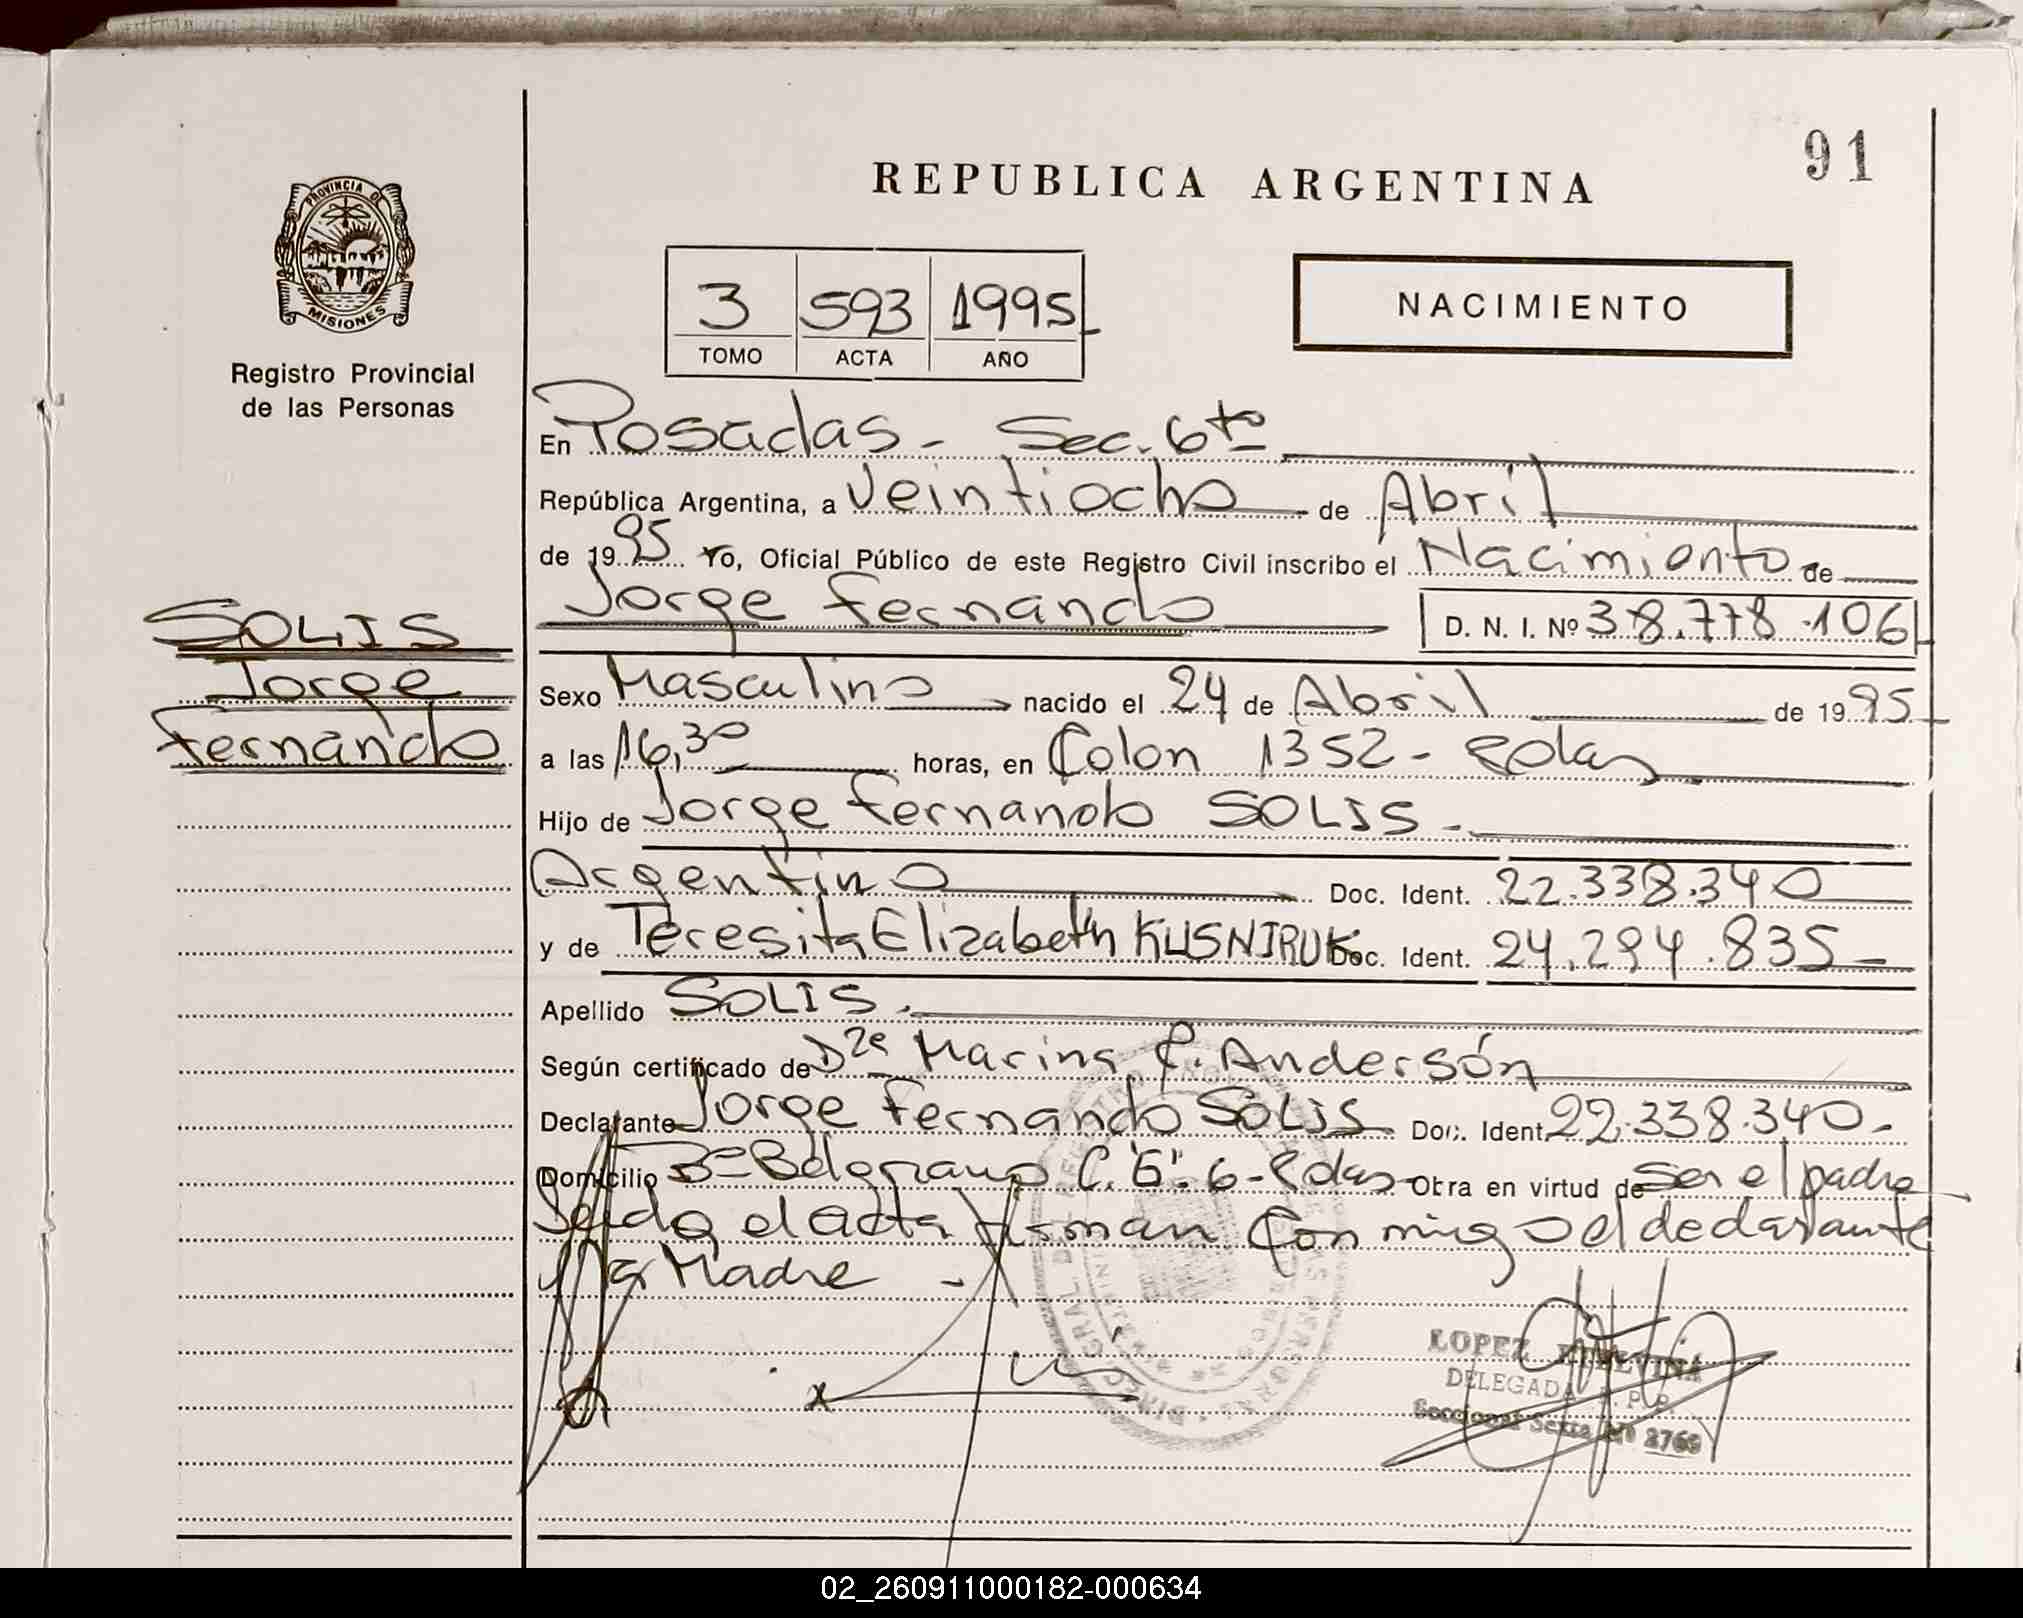 91
REPUBLICA ARGENTINA
PROVINCIA DE
MISIONES
Registro Provincial
de las Personas
3 593 1995
TOMO ACTA AÑO
NACIMIENTO
En Posadas - Sec. 6ta
República Argentina, a Veintiocho de Abril
de 1995 Yo, Oficial Público de este Registro Civil inscribo el Nacimiento de
Jorge Fernando D. N. I. Nº 38.778.106
SOLIS
Jorge
Fernando
Sexo Masculino nacido el 24 de Abril de 1995
a las 16,30 horas, en Colon 1352 - Pdas
Hijo de Jorge Fernando SOLIS -
Argentino Doc. Ident. 22.338.340
y de Teresita Elizabeth KUSNIRUK Doc. Ident. 24.294.835
Apellido SOLIS.
Según certificado de Dra Marina C. Andersón
Declarante Jorge Fernando SOLIS Doc. Ident. 22.338.340.
Domicilio Bº Belgrano C. "G". 6 - Pdas Obra en virtud de ser el padre
Leida el acta firman conmigo el declarante
y la Madre -
LOPEZ ETELVINA
DELEGADA R. P. P.
Seccional Sexta Nº 2769
02_260911000182-000634